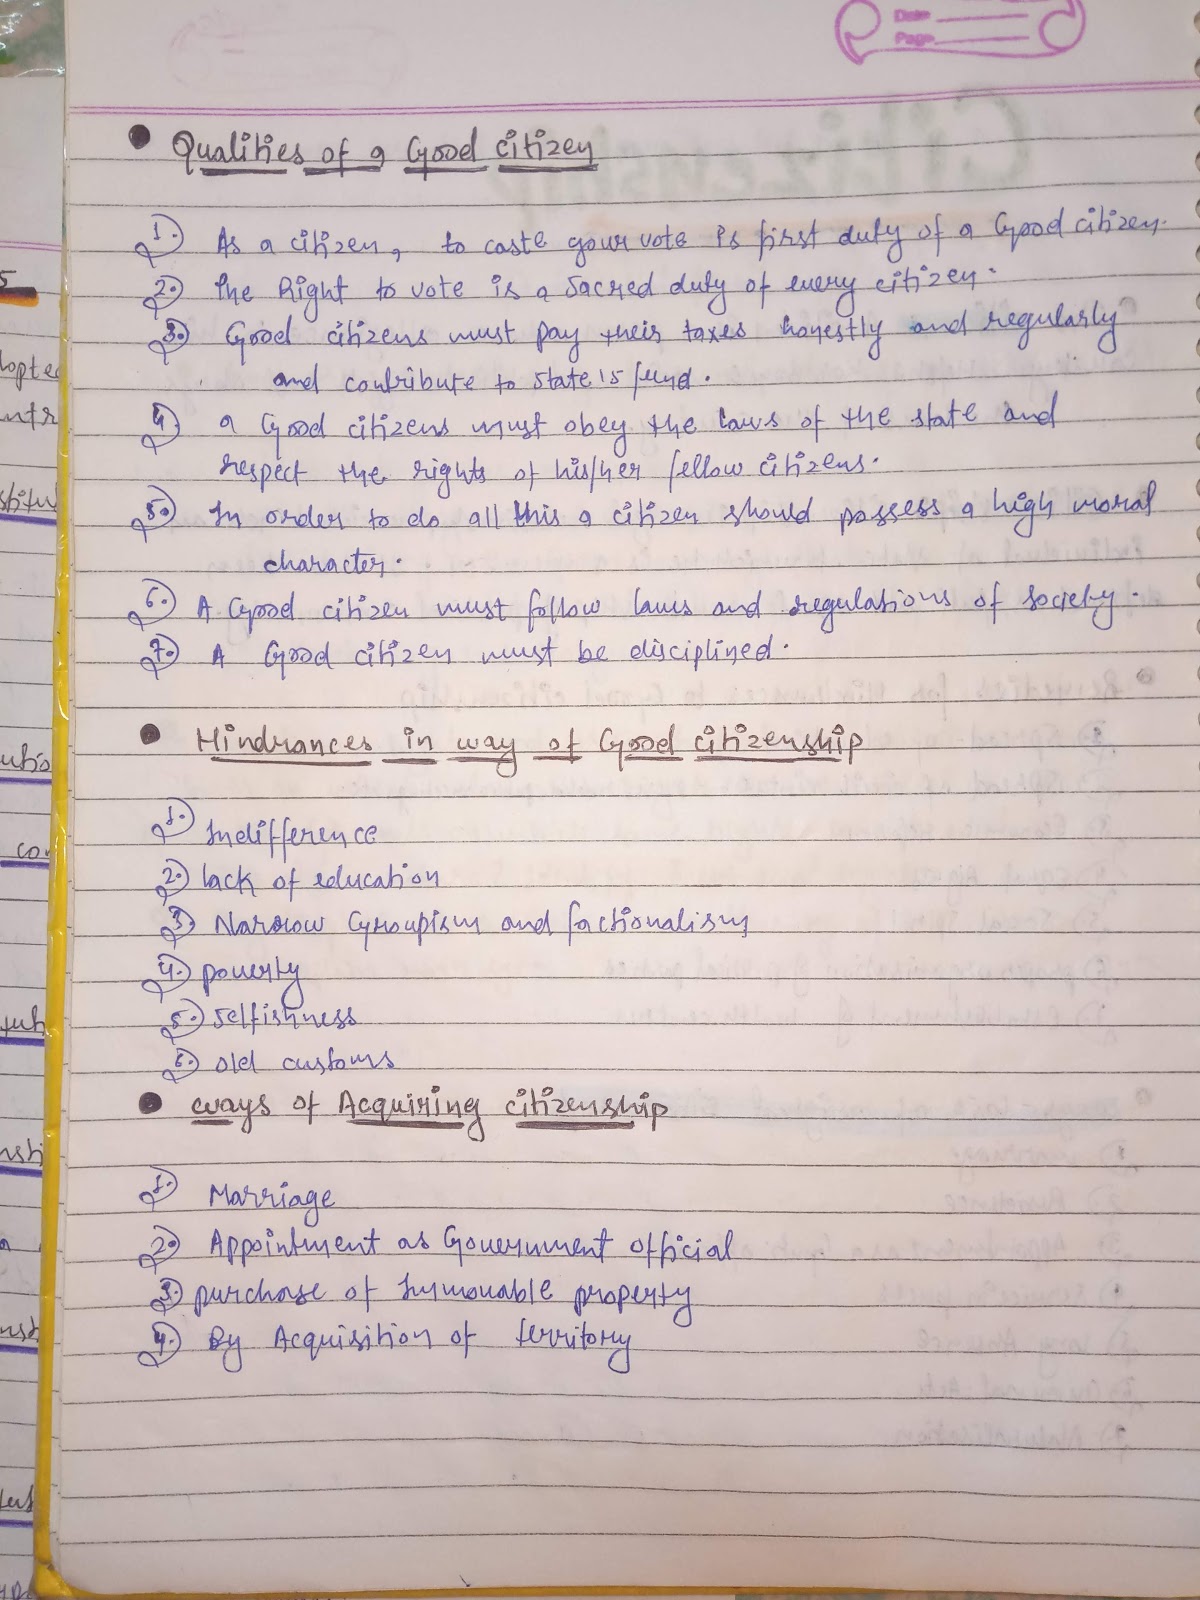 Date
Page
• Qualities of a Good citizen
1. As a citizen, to caste your vote is first duty of a Good citizen.
2. The Right to vote is a sacred duty of every citizen.
3. Good citizens must pay their taxes honestly and regularly
and contribute to state's fund.
4. a Good citizens must obey the laws of the state and
respect the rights of his/her fellow citizens.
5. In order to do all this a citizen should possess a high moral
character.
6. A Good citizen must follow laws and regulations of society.
7. A Good citizen must be disciplined.
• Hindrances in way of Good citizenship
1. Indifference
2. lack of education
3. Narrow Groupism and factionalism
4. poverty
5. selfishness
6. old customs
• ways of Acquiring citizenship
1. Marriage
2. Appointment as Government official
3. purchase of Immovable property
4. By Acquisition of territory